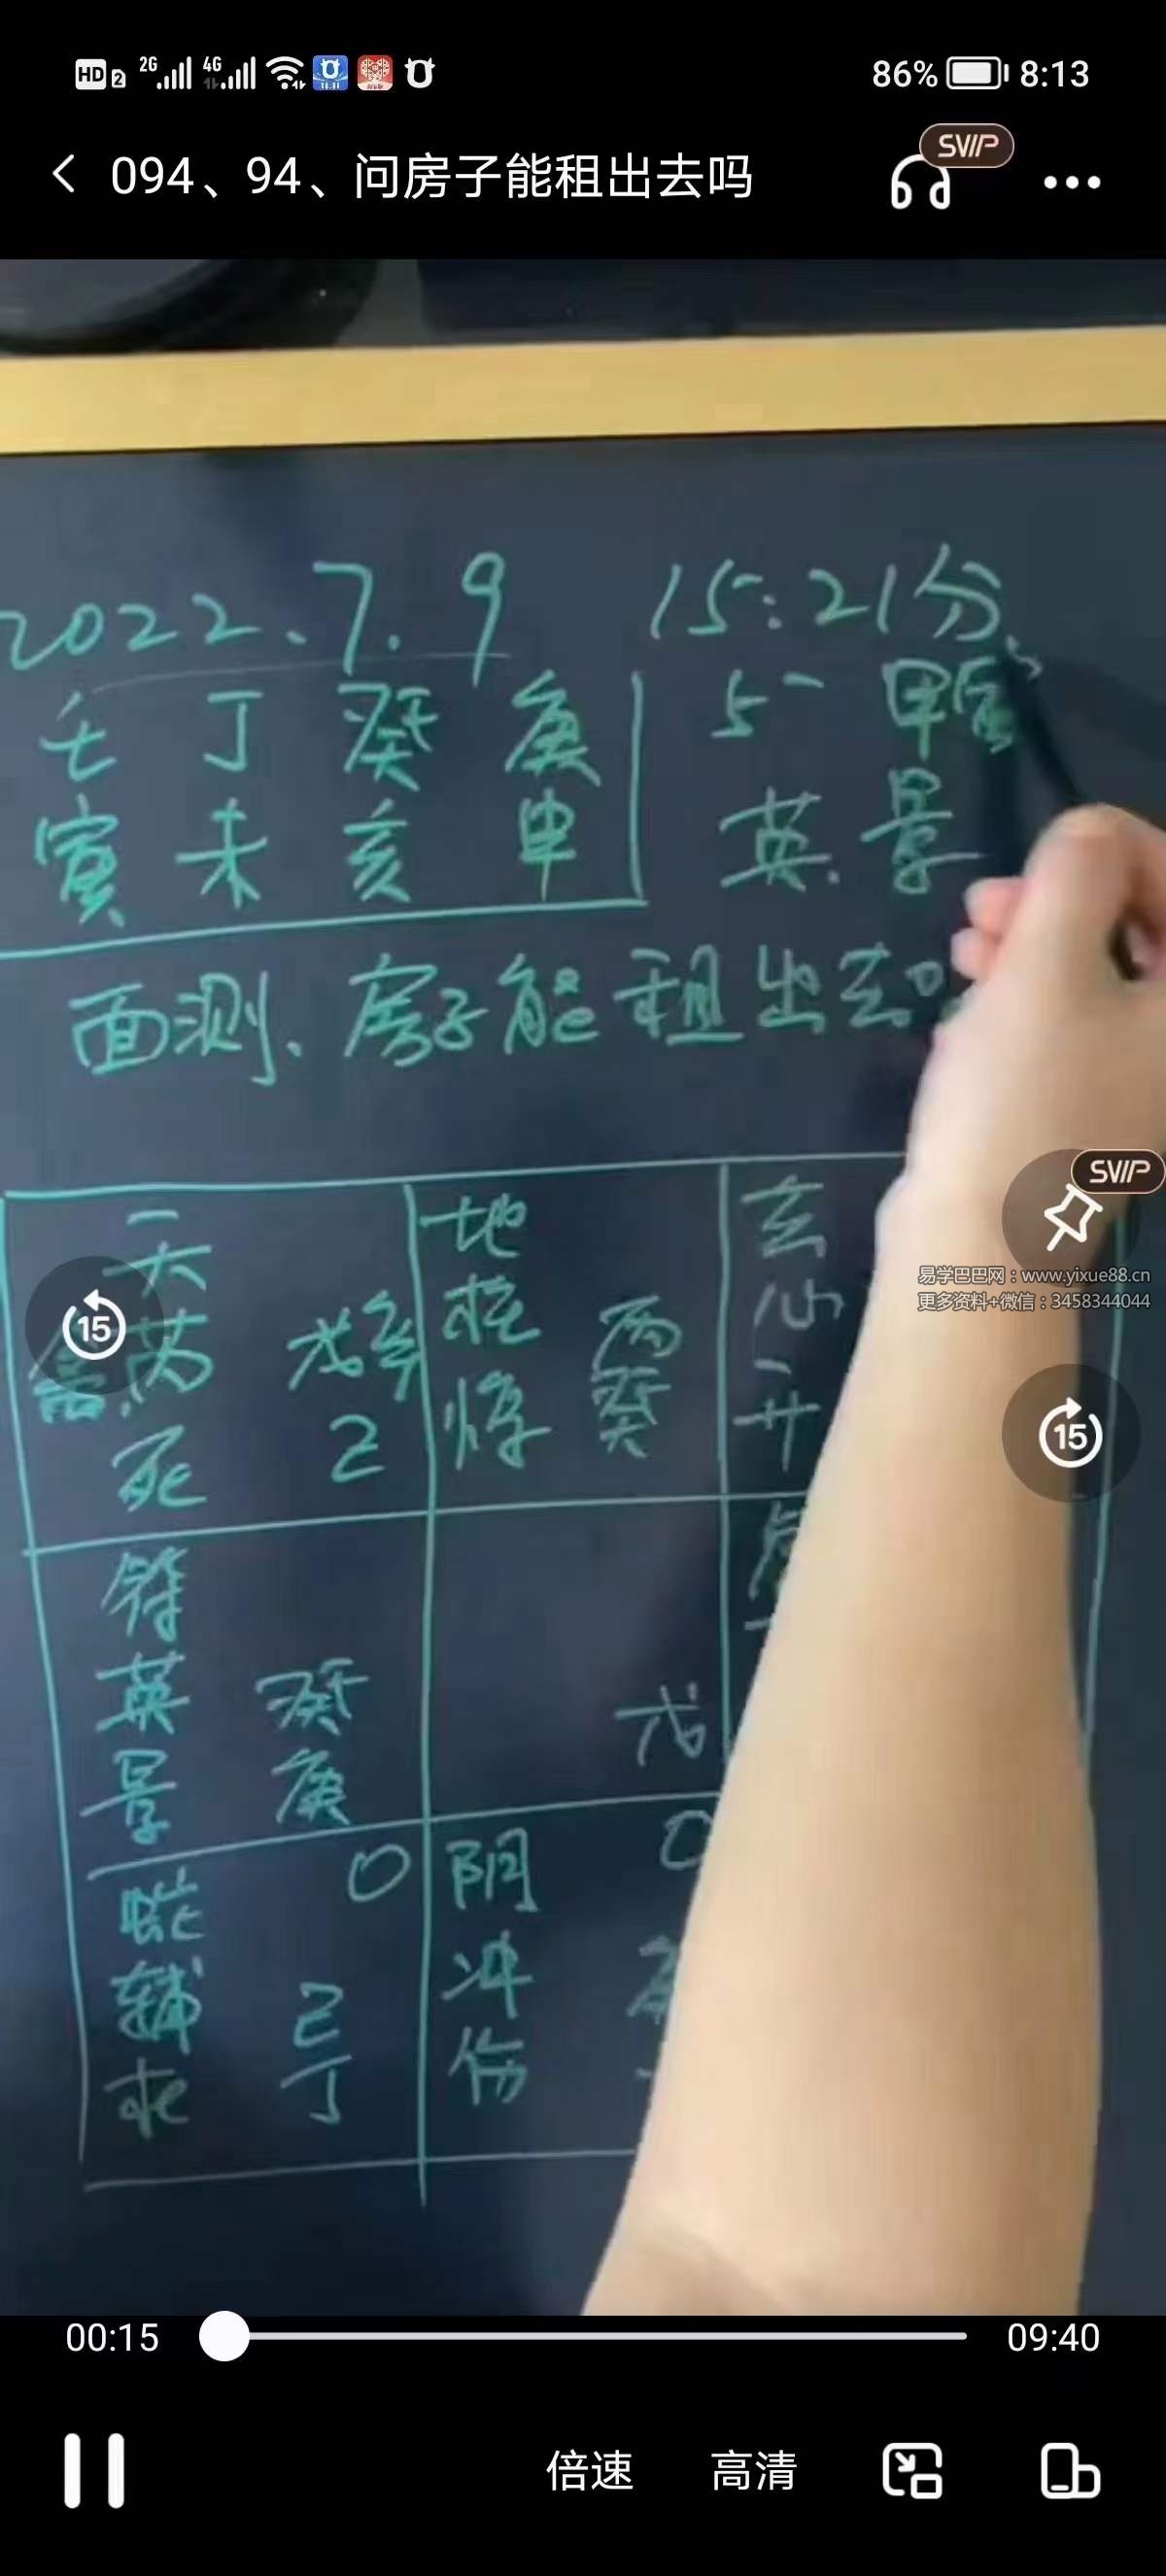 HD 2 2G 4G 86% 8:13
094、94、问房子能租出去吗
SVIP
2022、7.9 15:21分
壬 丁 癸 庚 5一 甲寅
寅 未 亥 申 英.景
面测、房子能租出去
SVIP
易学巴巴网：www.yixue88.cn
更多资料+微信：3458344044
15
15
天 地 玄
禽.芮 戊辛 柱 丙 心
死 乙 惊 癸 开
符
英 癸 戊
景 庚
蛇 0 阴 0
辅 己 冲
杜 丁 伤
00:15 09:40
倍速 高清